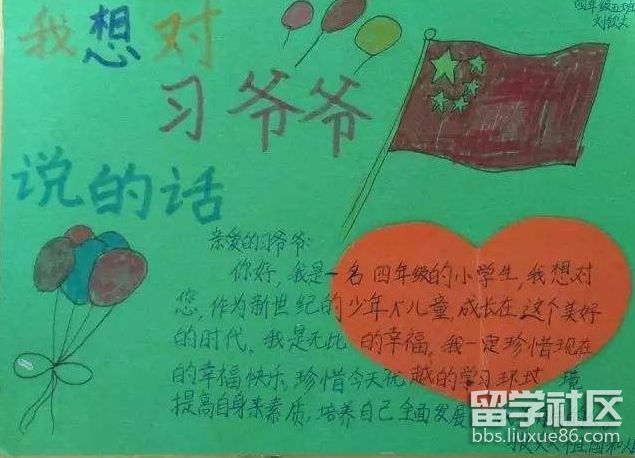 四年级五班
刘
我想对
习爷爷
说的话
亲爱的习爷爷:
你好,我是一名四年级的小学生,我想对
您,作为新世纪的少年儿童,成长在这个美好
的时代,我是无比 的幸福,我一定珍惜现在
的幸福快乐,珍惜今天优越的学习环境
提高自身素质,培养自己全面发展
留学社区
bbs.liuxue86.com